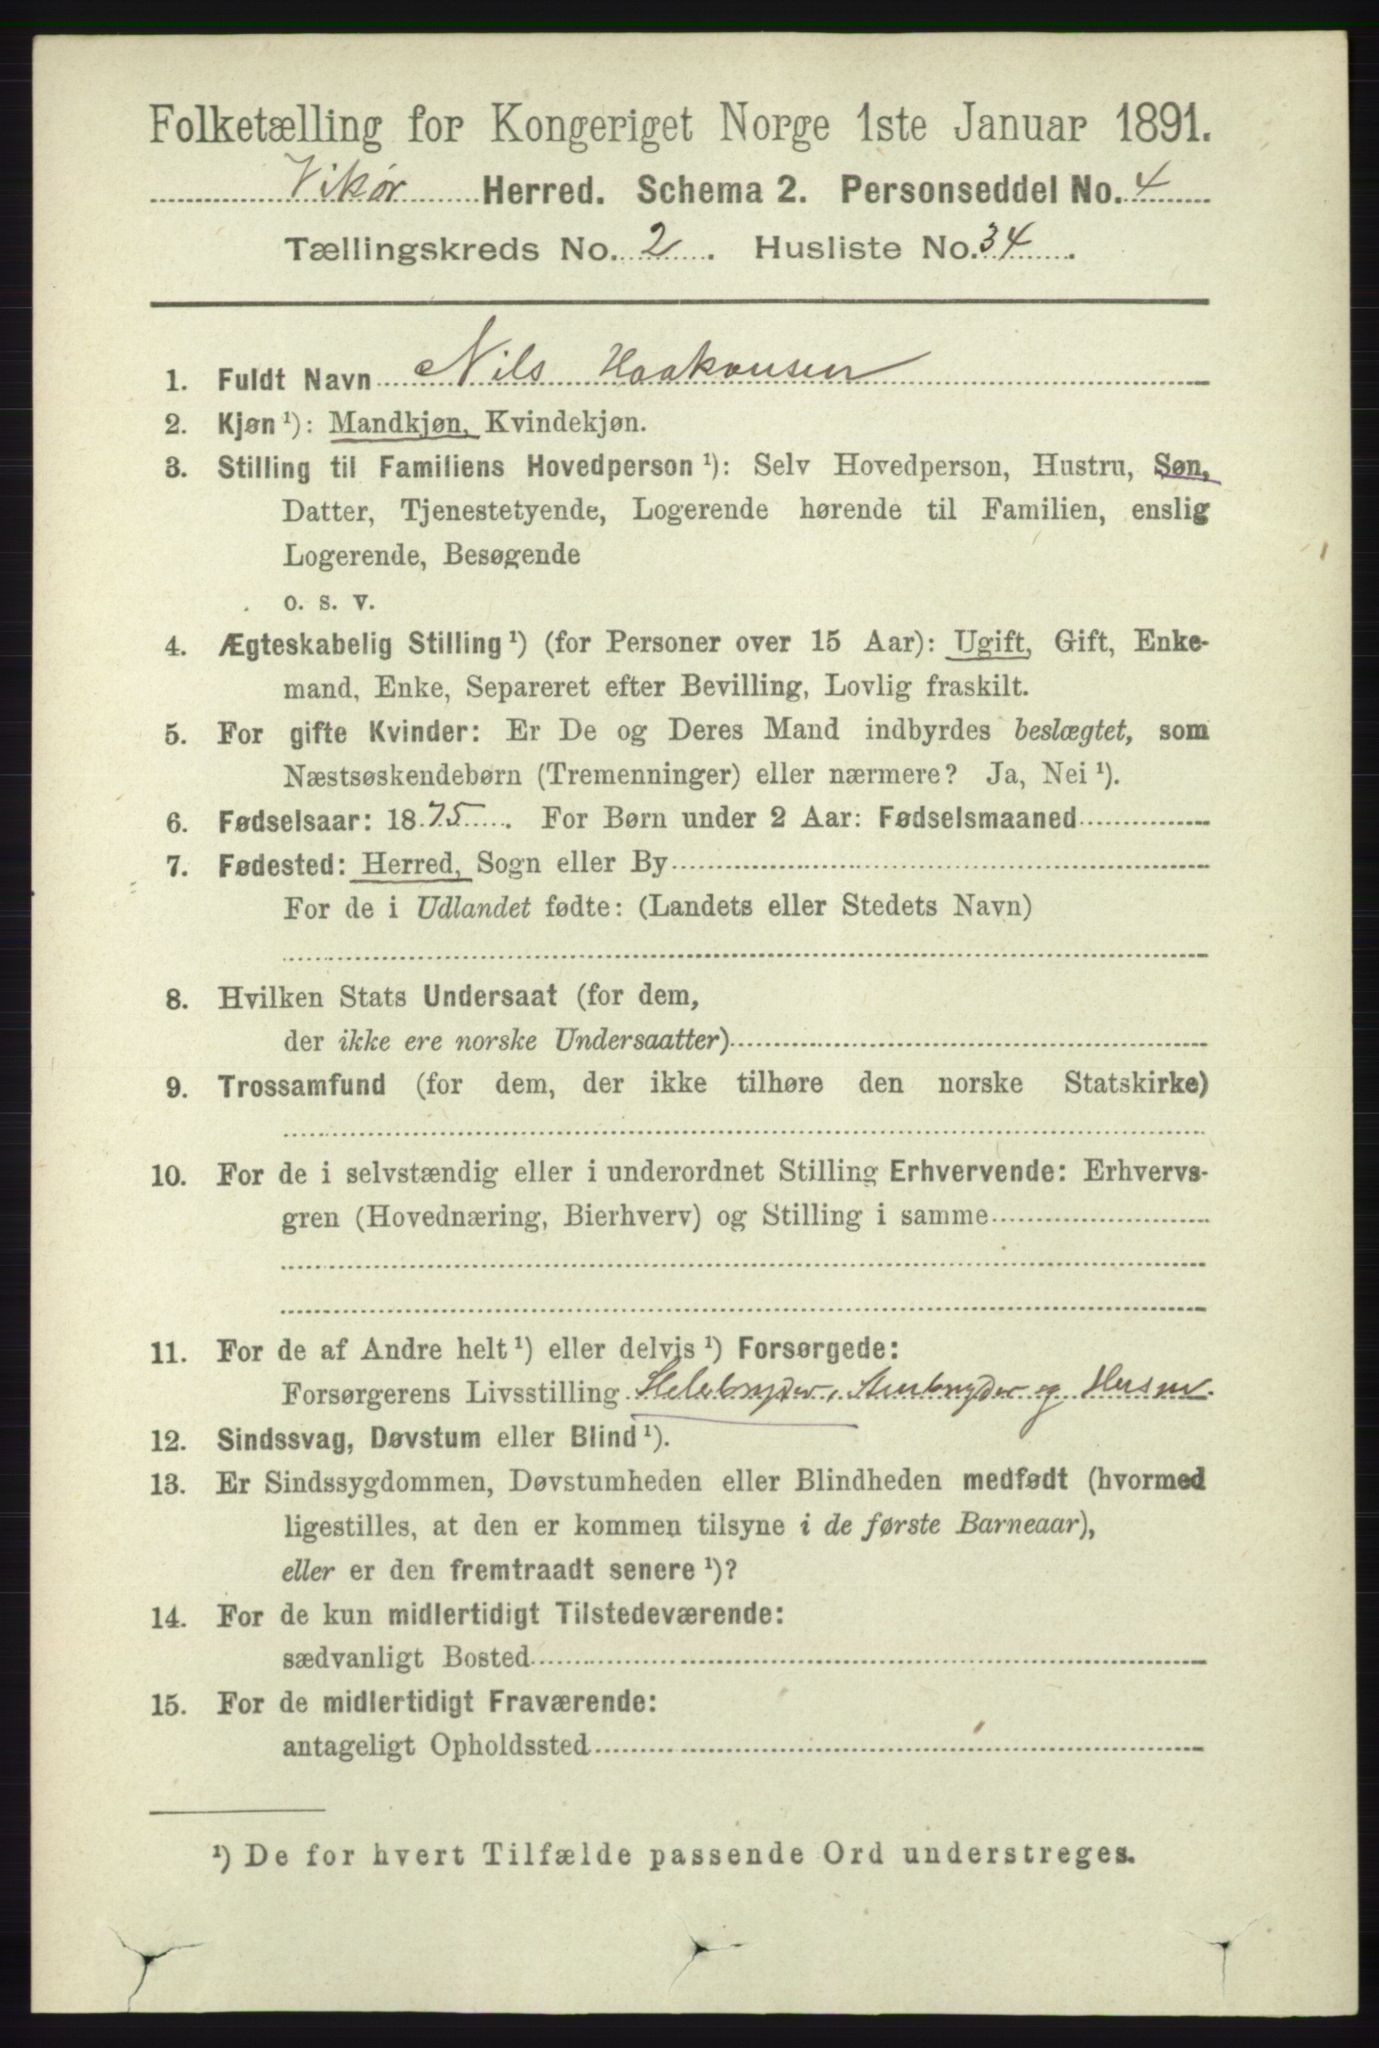 Folketælling for Kongeriget Norge 1ste Januar 1891.
Vikør Herred. Schema 2. Personseddel No. 4
Tællingskreds No. 2. Husliste No. 34.
1. Fuldt Navn Nils Haakonsen
2. Kjøn ¹): Mandkjøn, Kvindekjøn.
3. Stilling til Familiens Hovedperson ¹): Selv Hovedperson, Hustru, Søn,
Datter, Tjenestetyende, Logerende hørende til Familien, enslig
Logerende, Besøgende
o. s. v.
4. Ægteskabelig Stilling ¹) (for Personer over 15 Aar): Ugift, Gift, Enke-
mand, Enke, Separeret efter Bevilling, Lovlig fraskilt.
5. For gifte Kvinder: Er De og Deres Mand indbyrdes beslægtet, som
Næstsøskendebørn (Tremenninger) eller nærmere? Ja, Nei ¹).
6. Fødselsaar: 1875. For Børn under 2 Aar: Fødselsmaaned
7. Fødested: Herred, Sogn eller By
For de i Udlandet fødte: (Landets eller Stedets Navn)
8. Hvilken Stats Undersaat (for dem,
der ikke ere norske Undersaatter)
9. Trossamfund (for dem, der ikke tilhøre den norske Statskirke)
10. For de i selvstændig eller i underordnet Stilling Erhvervende: Erhvervs-
gren (Hovednæring, Bierhverv) og Stilling i samme
11. For de af Andre helt ¹) eller delvis ¹) Forsørgede:
Forsørgerens Livsstilling og
12. Sindssvag, Døvstum eller Blind ¹).
13. Er Sindssygdommen, Døvstumheden eller Blindheden medfødt (hvormed
ligestilles, at den er kommen tilsyne i de første Barneaar),
eller er den fremtraadt senere ¹)?
14. For de kun midlertidigt Tilstedeværende:
sædvanligt Bosted
15. For de midlertidigt Fraværende:
antageligt Opholdssted
¹) De for hvert Tilfælde passende Ord understreges.